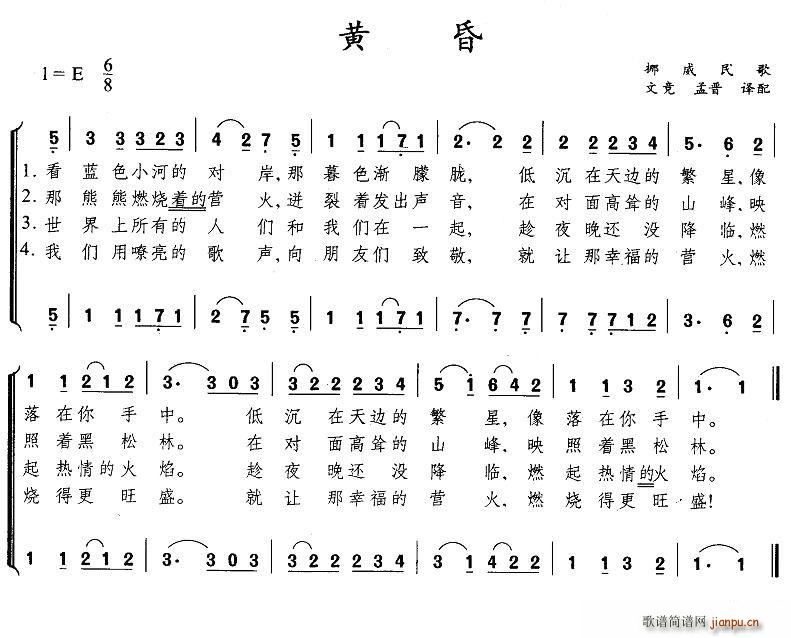 黄 昏
1=E 6/8
挪 威 民 歌
文竞 孟晋 译配
5 | 3 3 3 2 3 | 4 2 7 5 | 1 1 1 1 7 1 | 2· 2 2 | 2 2 2 2 3 4 | 5· 6 2
1. 看 蓝 色 小 河 的 对 岸, 那 暮 色 渐 朦 胧, 低 沉 在 天 边 的 繁 星, 像
2. 那 熊 熊 燃 烧 着 的 营 火, 迸 裂 着 发 出 声 音, 在 对 面 高 耸 的 山 峰, 映
3. 世 界 上 所 有 的 人 们 和 我 们 在 一 起, 趁 夜 晚 还 没 降 临, 燃
4. 我 们 用 嘹 亮 的 歌 声, 向 朋 友 们 致 敬, 就 让 那 幸 福 的 营 火, 燃
5 | 1 1 1 7 1 | 2 7 5 5 | 1 1 1 1 7 1 | 7· 7 7 | 7 7 7 7 1 2 | 3· 6 2
1 1 2 1 2 | 3· 3 0 3 | 3 2 2 2 3 4 | 5 1 6 4 2 | 1 1 3 2 | 1· 1 ‖
落 在 你 手 中。 低 沉 在 天 边 的 繁 星, 像 落 在 你 手 中。
照 着 黑 松 林。 在 对 面 高 耸 的 山 峰, 映 照 着 黑 松 林。
起 热 情 的 火 焰。 趁 夜 晚 还 没 降 临, 燃 起 热 情 的 火 焰。
烧 得 更 旺 盛。 就 让 那 幸 福 的 营 火, 燃 烧 得 更 旺 盛!
1 1 2 1 2 | 3· 3 0 3 | 3 2 2 2 3 4 | 3 1 4 2 2 | 1 1 3 2 | 1· 1 ‖
歌谱简谱网
jianpu.cn